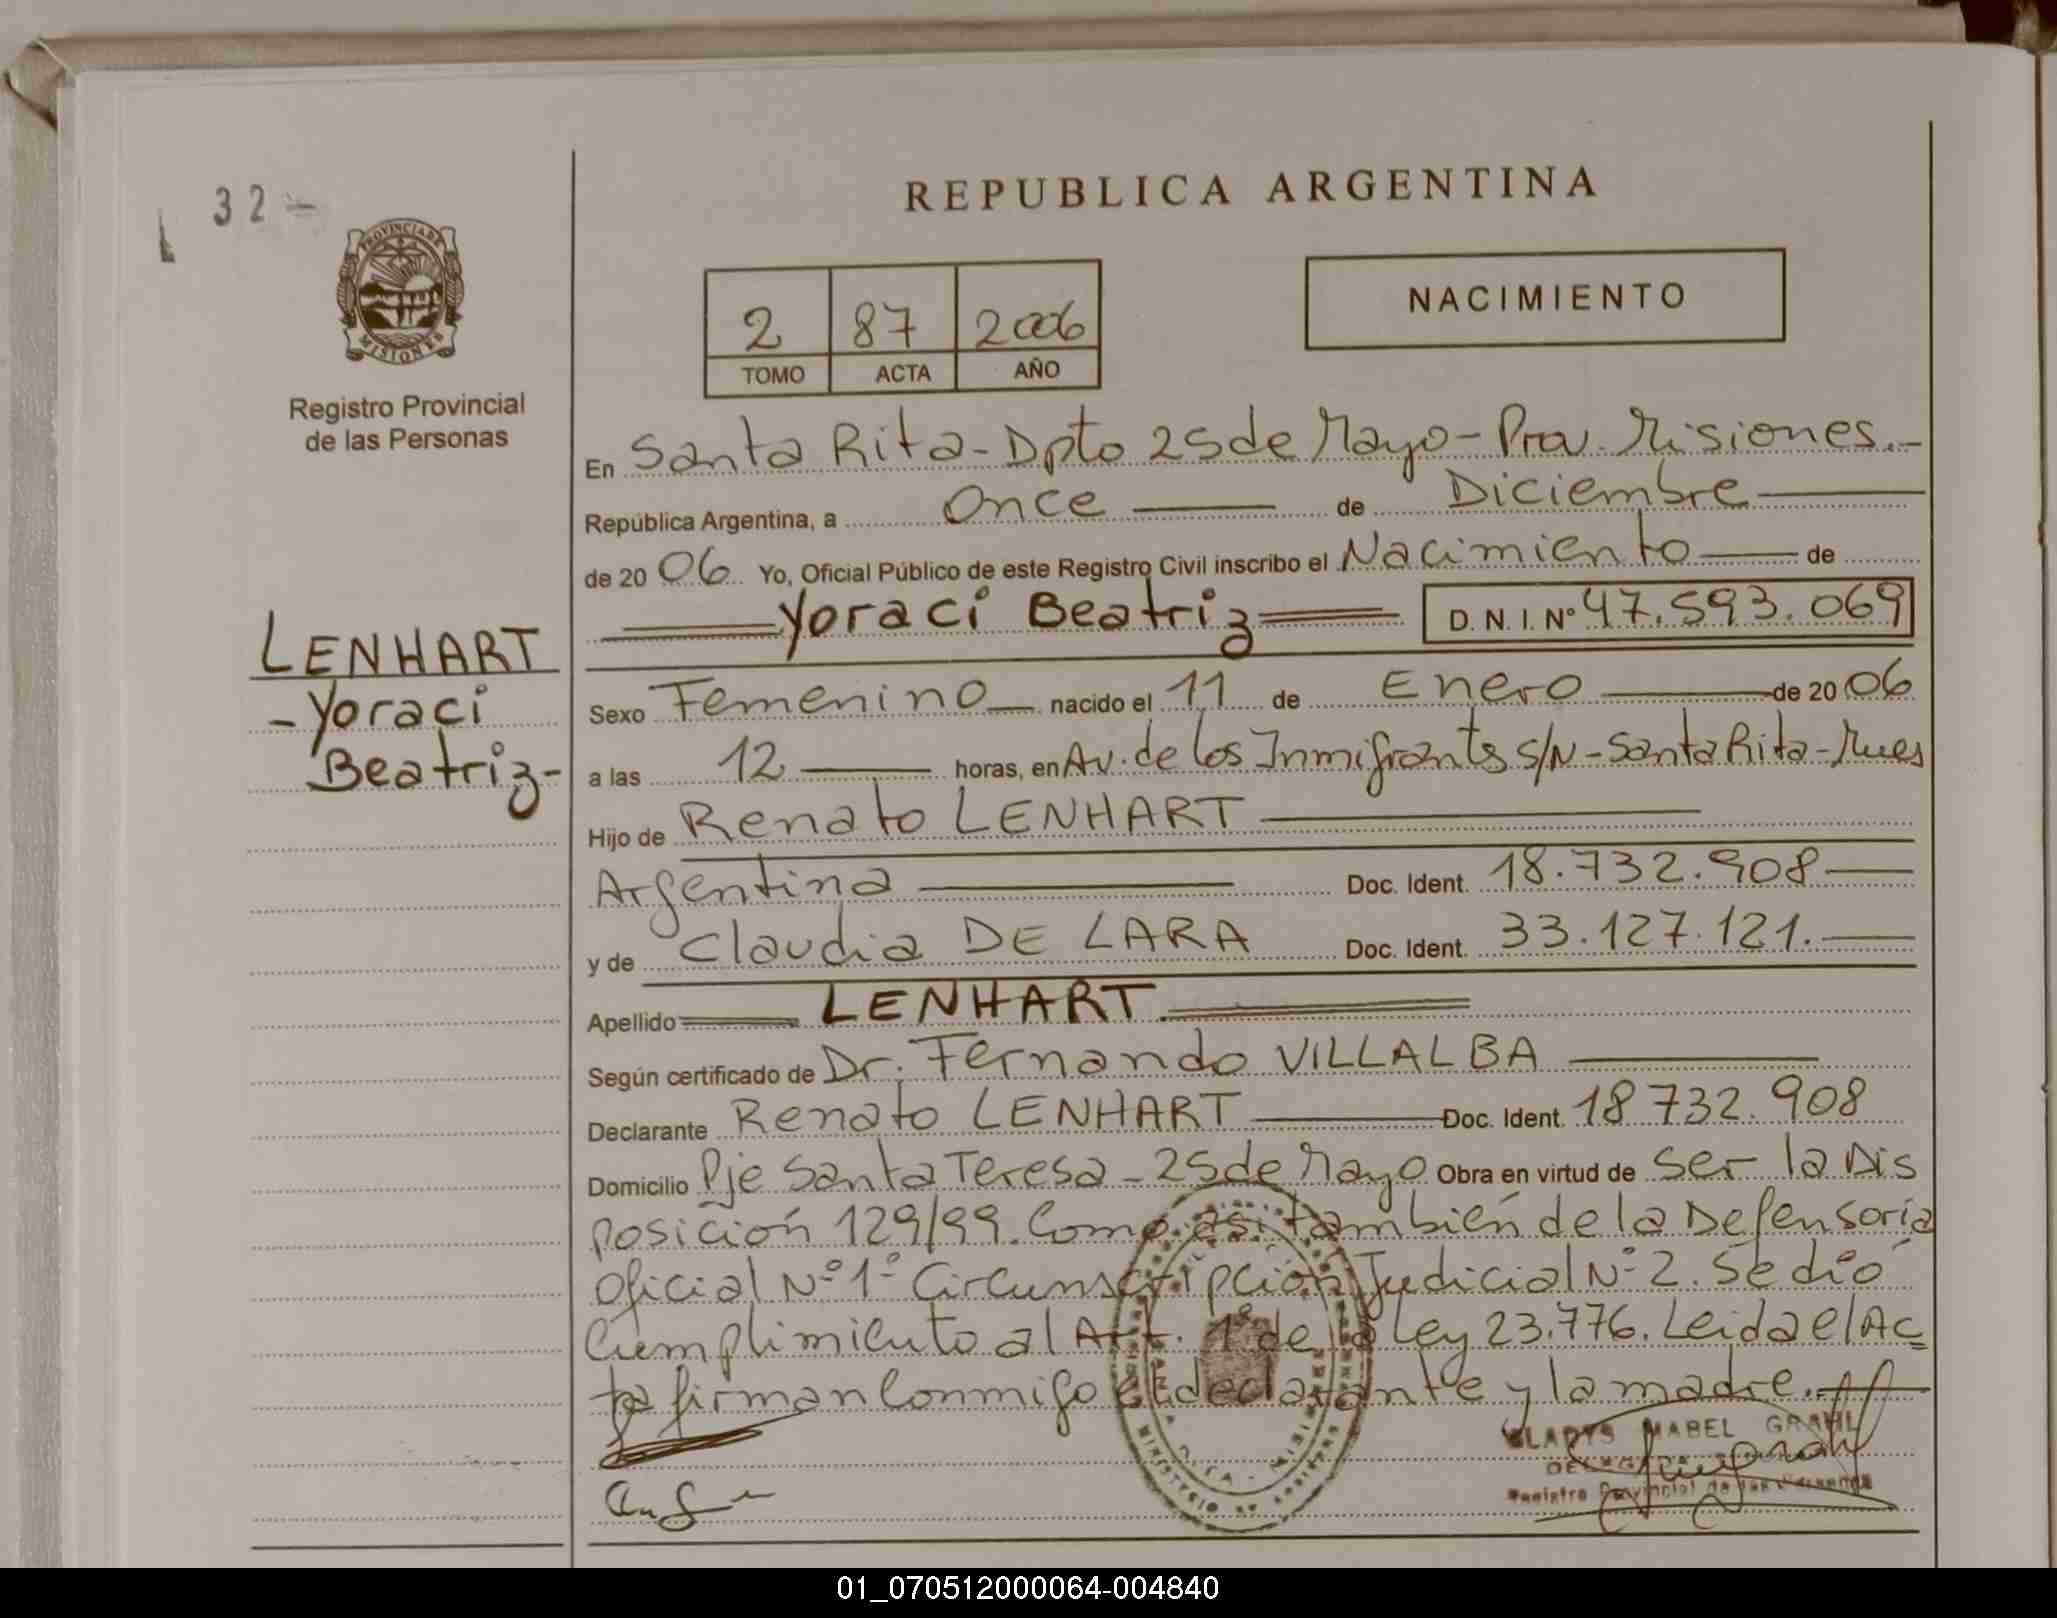 32 -
PROVINCIA DE
MISIONES
Registro Provincial
de las Personas
REPUBLICA ARGENTINA
2 87 2006
TOMO ACTA AÑO
NACIMIENTO
En Santa Rita - Dpto 25 de Mayo - Prov. Misiones.-
República Argentina, a Once de Diciembre
de 20 06 Yo, Oficial Público de este Registro Civil inscribo el Nacimiento de
Yoraci Beatriz D.N.I. Nº 47.593.069
LENHART
- Yoraci
Beatriz-
Sexo Femenino nacido el 11 de Enero de 20 06
a las 12 horas, en Av. de los Inmigrants S/N - Santa Rita - Mnes
Hijo de Renato LENHART
Argentina Doc. Ident. 18.732.908
y de Claudia DE LARA Doc. Ident. 33.127.121.
Apellido LENHART
Según certificado de Dr. Fernando VILLALBA
Declarante Renato LENHART Doc. Ident. 18 732.908
Domicilio Pje Santa Teresa - 25 de Mayo Obra en virtud de ser la Dis
posición 129/99. Como asi también de la Defensoría
Oficial Nº 1º Circunscripción Judicial Nº 2. Se dió
Cumplimiento al Art. 1º de la Ley 23.776. Leida el Ac
ta firman conmigo el declarante y la madre.
GLADYS MABEL GRAHL
Registro Provincial de las Personas
MINISTERIO DE
01_070512000064-004840